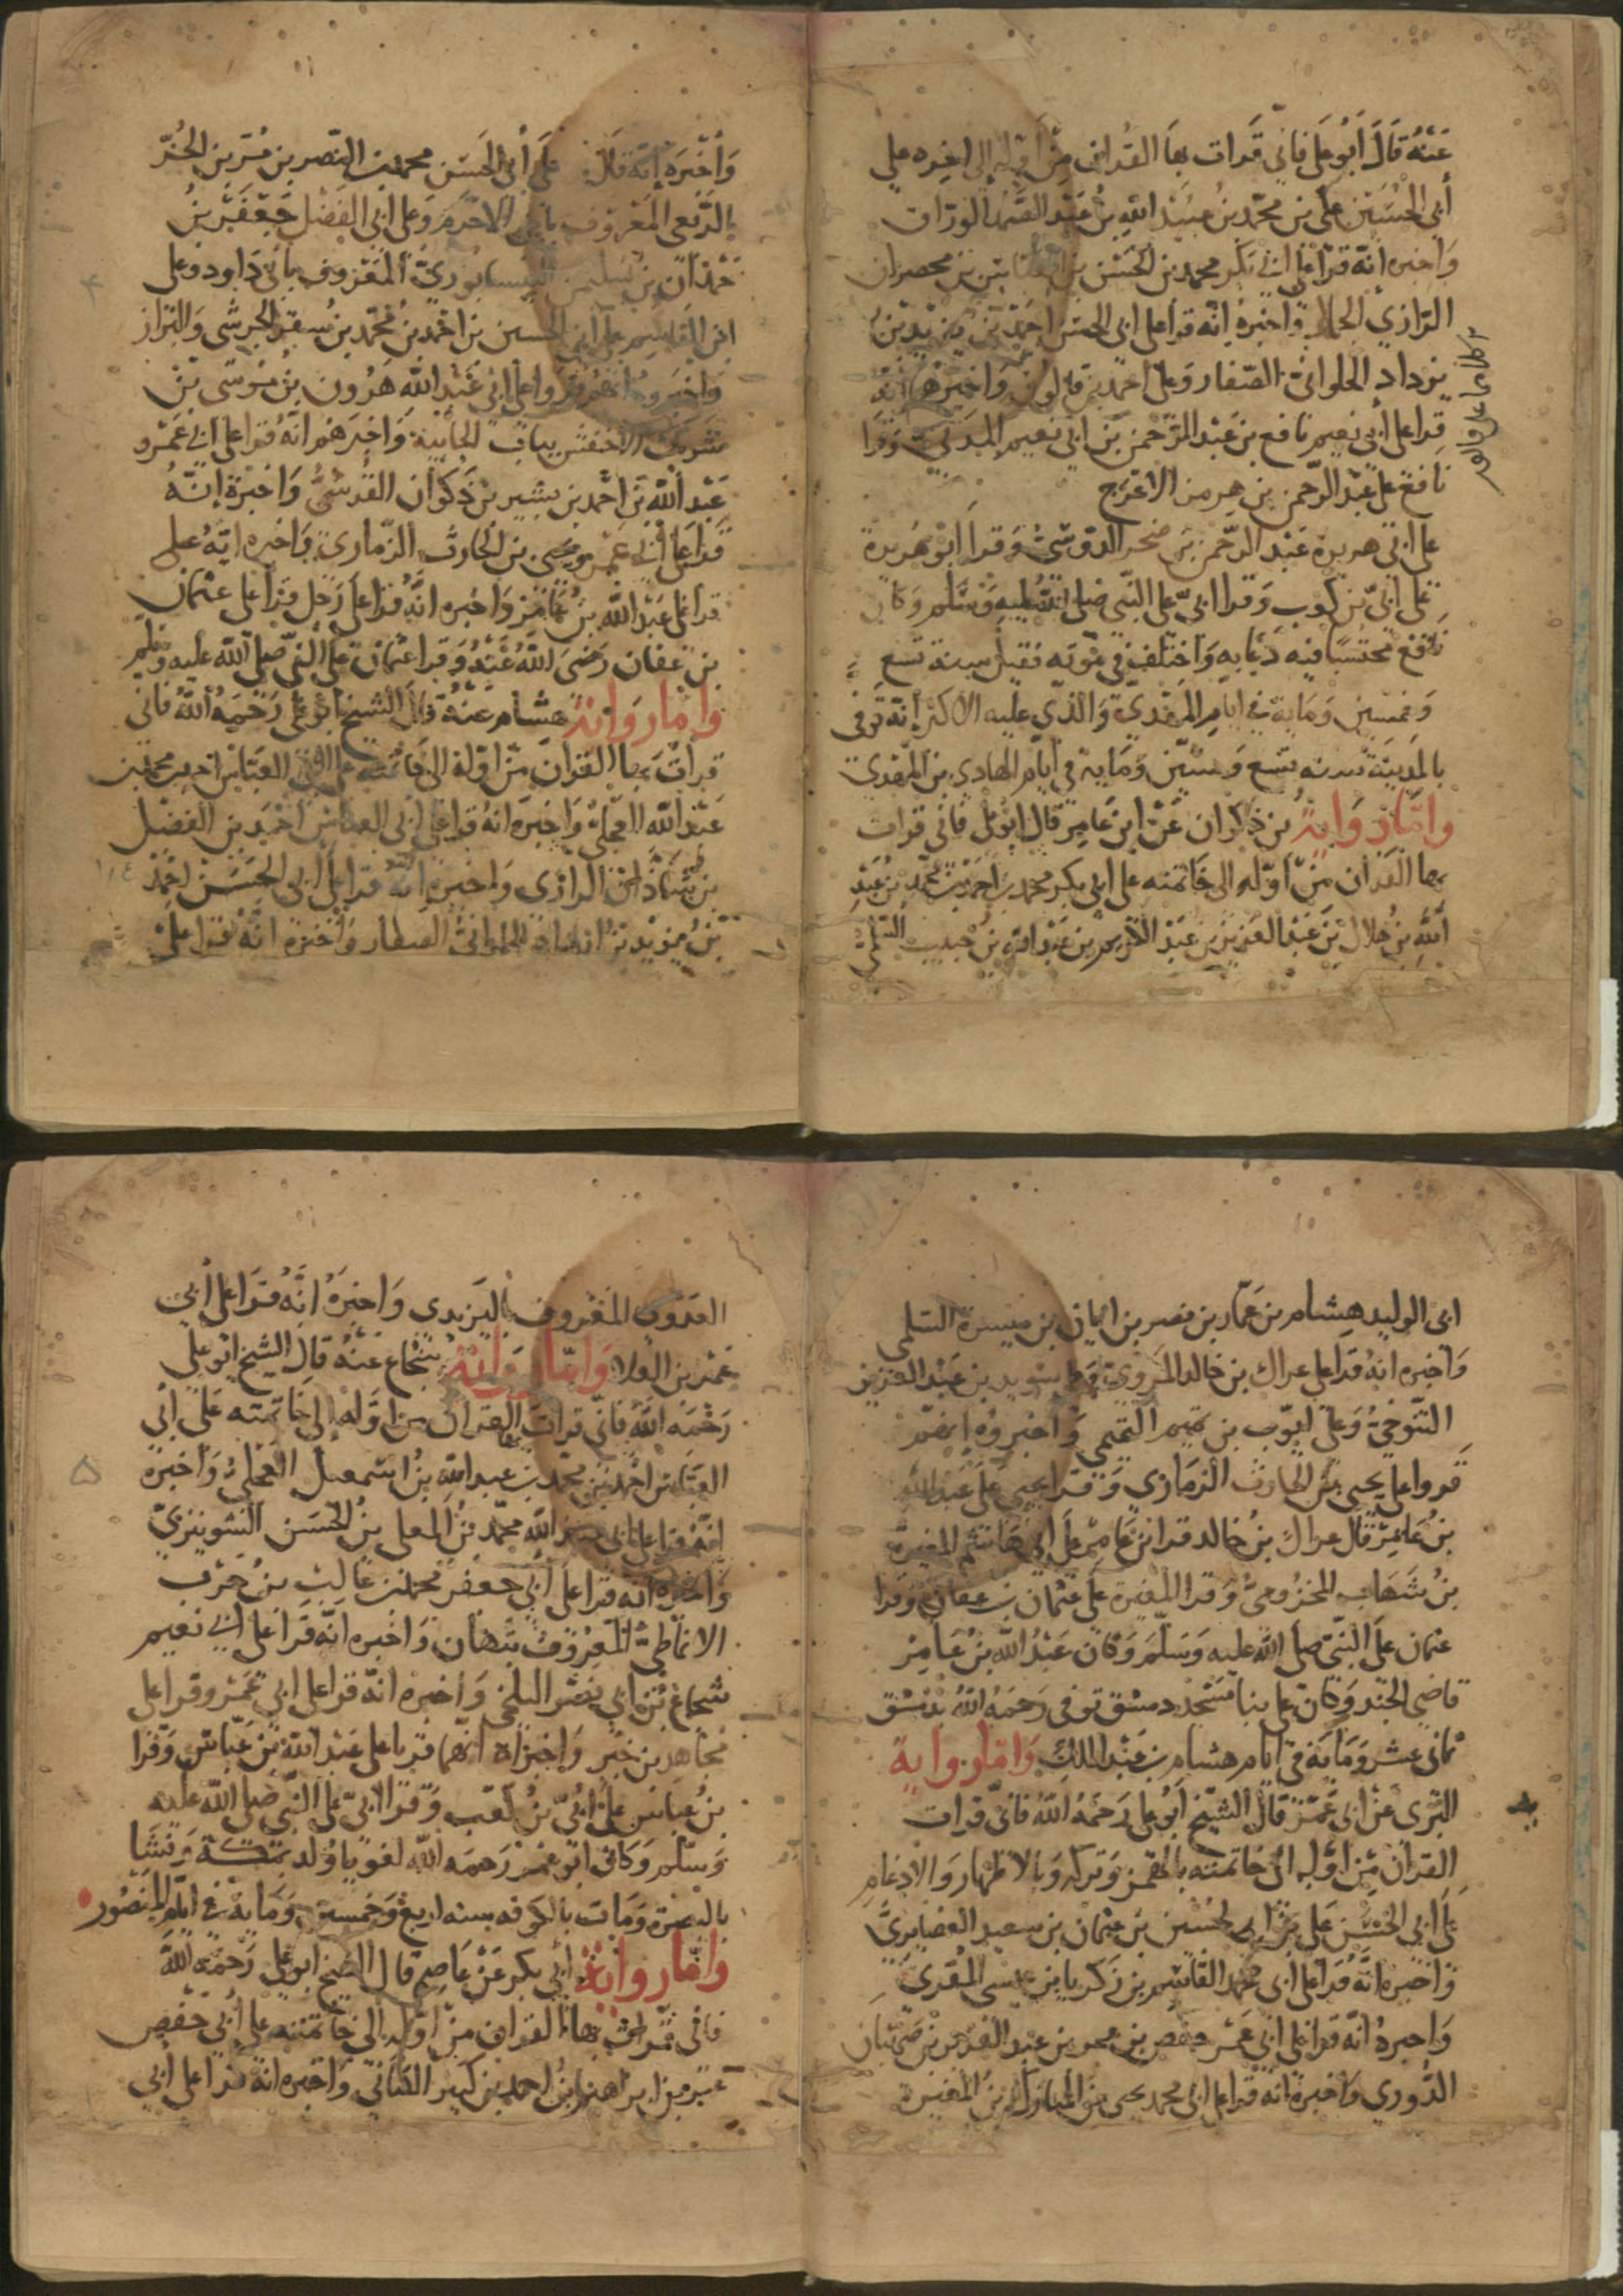 عنه قال أبو علي فاني قرات بها القران من أوله إلى اخره على
أبي الحسين علي بن محمد بن عبيد الله بن عبد الصمد الوراق
واخبره انه قرا على ابي بكر محمد بن الحسن بن
الرازي الجمال واخبره انه قرا على ابي الحسن احمد بن يزيد بن
يزداد الحلواني الصفار وعلى احمد بن قالون واخبرهما انه
قرا على أبي نعيم نافع بن عبد الرحمن بن ابي نعيم المدني وقرا
نافع على عبد الرحمن بن هرمز الاعرج
على ابي هريرة عبد الرحمن بن صخر الدوسي وقرا ابو هريرة
على ابي بن كعب وقرا ابي على النبي صلى الله عليه وسلم وكان
نافع محتسبا فيه دعابه واختلف في موته فقيل سنة تسع
وخمسين وماية في ايام المهدي والذي عليه الاكثر إنه توفى
بالمدينة سنه تسع وستين وماية في أيام الهادي بن المهدي
واما رواية بن ذكوان عن ابن عامر قال ابو علي فاني قرات
بها القران من أوله الى خاتمته على ابي بكر محمد بن احمد بن محمد بن عبد
الله بن هلال بن عبد العزيز بن عبد الكريم بن عبد الله بن حبيب السلمي
وأخبره إنه قال على أبي الحسن محمد بن النضر بن مر بن الحر
الربعي المعروف بابن الاخرم وعلى ابي الفضل جعفر بن
حمدان بن سليمن النيسابوري المعروف بابي داود وعلى
ابي القاسم علي بن الحسين بن احمد بن محمد بن سفر الجرشي والبزاز
واخبروه انهم قرواعلى ابي عبد الله هرون بن موسى بن
شريك الاخفش بباب الجابية واخبرهم انه قرا على ابي عمرو
عبد الله بن احمد بن بشير بن ذكوان القرشي واخبره إنه
قرا على أبي عمر ويحيى بن الحارث الزماري واخبره انه على
قرا على عبد الله بن عامر واخبره انه قرا على رجل قرا على عثمان
بن عفان رضى الله عنه وقرا عثمان على النبي صلى الله عليه وسلم
واما رواية هشام عنه قال الشيخ ابو علي رحمه الله فاني
قرات بها القران من اوله الى خاتمته على ابي العباس احمد بن محمد بن
عبد الله العجلي واخبره انه قرا على ابي العباس احمد بن الفضل
بن شاذان الرازى واخبره انه قرا على ابي الحسن احمد
بن يزيد بن ازداذ الحلواني الصفار واخبره انه قرا على
ابى الوليد هشام بن عمار بن نصر بن ابان بن ميسرة السلمي
واخبره انه قرا على عراك بن خالد المروي وعلى سويد بن عبد العزيز
التنوخي وعلى ايوب بن تميم التميمي واخبروه انهم
قرواعلى يحيى بن الحارث الزماري وقرا يحيى على عبد الله
بن عامر قال عراك بن خالد قرا بن عامر على ابي هاشم المغيرة
بن شهاب المخزومي وقرا المغيرة على عثمان بن عفان وقرا
عثمان على النبي صلى الله عليه وسلم وكان عبد الله بن عامر
قاضي الجند وكان على بنا مسجد دمشق توفى رحمه الله بدمشق
ثماني عشر وماية في ايام هشام بن عبد الملك واما رواية
اليزيدى عن ابي عمر قال الشيخ ابو علي رحمه الله فاني قرات
القران من اوله الى خاتمته بالهمز وتركه وبالاظهار والادغام
على ابي الحسن علي بن الحسين بن عثمان بن سعيد الغضايري
واخبره انه قرا على ابى محمد القاسم بن زكريا بن عيسى المقري
واخبره انه قرا على ابي عمر حفص بن عمر بن عبد العزيز بن صهبان
الدوري واخبره انه قرا على ابي محمد يحيى بن المبارك بن المغيرة
العدوي المعروف باليزيدى واخبره انه قرا على أبي
عمر بن العلا واما رواية شجاع عنه قال الشيخ ابو علي
رحمه الله فاني قرات بها القران من اوله إلى خاتمته على ابي
العباس احمد بن محمد بن عبد الله بن اسمعيل العجلي واخبره
انه قرا على ابي عبد الله محمد بن المعلى بن الحسن الشونيزي
واخبره انه قرا على ابي جعفر محمد بن غالب بن حرب
الانماطي المعروف بتهان واخبره انه قرا على ابي نعيم
شجاع بن ابي نصر البلخي وأخبره انه قرا على ابي عمر وقرا على
مجاهد بن جبر واخبراه انهما قريا على عبد الله بن عباس وقرا
بن عباس على ابي بن كعب وقرا ابي على النبي صلى الله عليه
وسلم وكان ابو عمر رحمه الله لغويا ولد بمكة ونشا
بالبصرة ومات بالكوفه سنه اربع وخمسين وماية في ايام المنصور
واما رواية أبي بكر عن عاصم قال الشيخ ابو علي رحمه الله
فاني قرات بها القران من اوله إلى خاتمته على أبي حفص
عمر بن ابراهيم بن احمد بن كثير الكتاني واخبره انه قرا على ابي